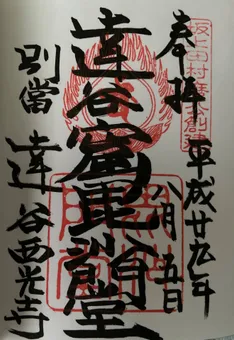 奉拝
坂上田村麿公創建
平成廿九年
八月五日
達谷窟毘沙門堂
別當
達谷西光寺